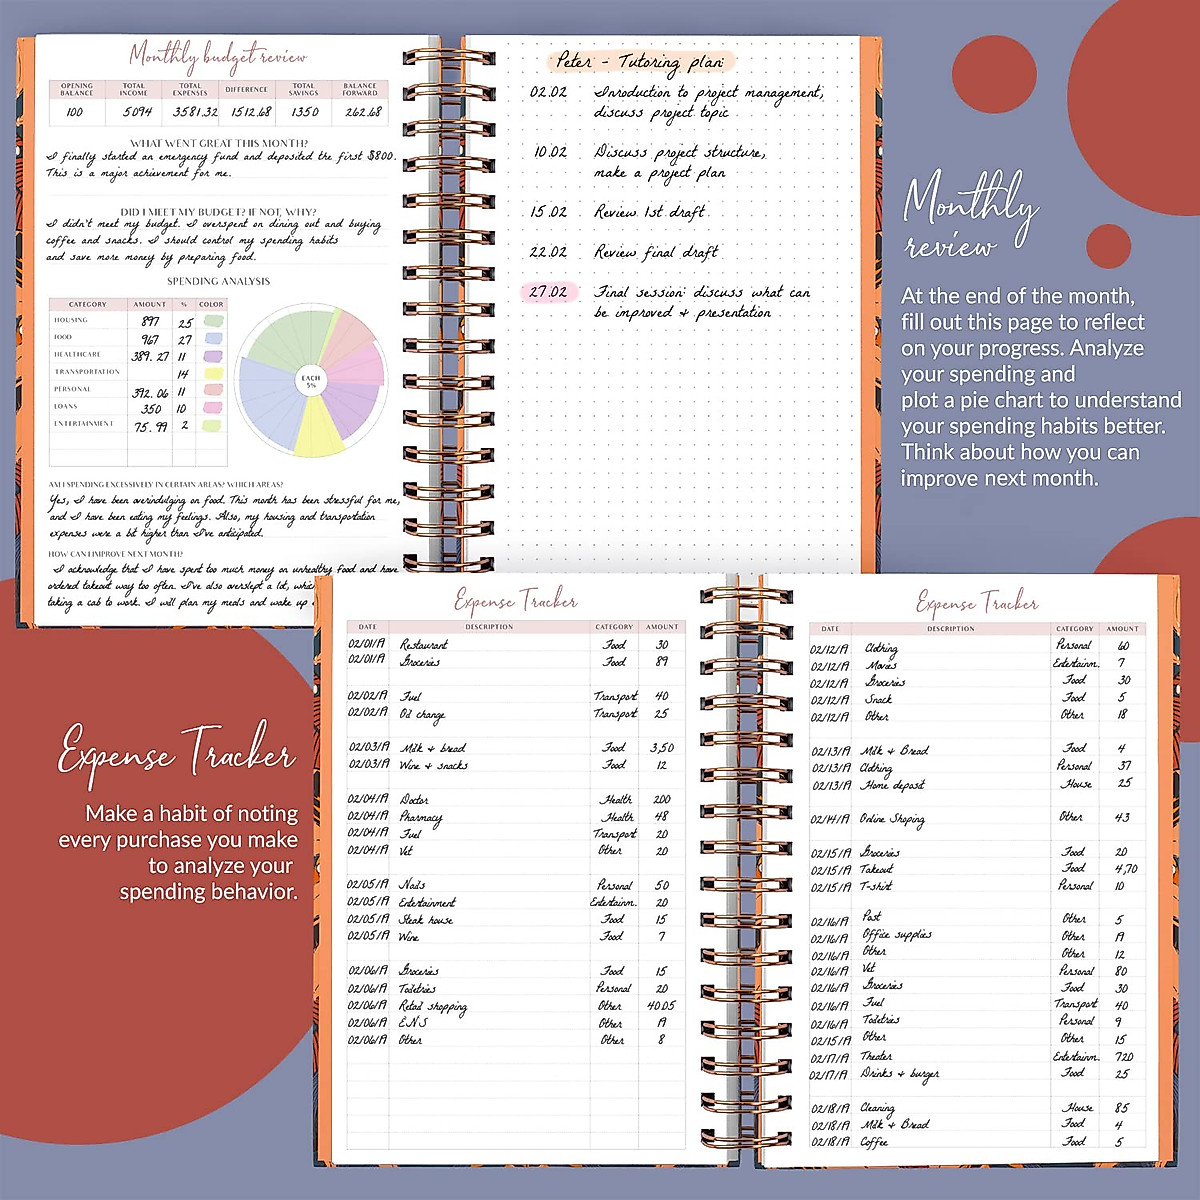 Monthly budget review
OPENING BALANCE TOTAL INCOME TOTAL EXPENSES DIFFERENCE TOTAL SAVINGS BALANCE FORWARD
100 5094 3581.32 1512.68 1350 262.68
WHAT WENT GREAT THIS MONTH?
I finally started an emergency fund and deposited the first $800.
This is a major achievement for me.
DID I MEET MY BUDGET? IF NOT, WHY?
I didn't meet my budget. I overspent on dining out and buying
coffee and snacks. I should control my spending habits
and save more money by preparing food.
SPENDING ANALYSIS
CATEGORY AMOUNT % COLOR
HOUSING 897 25
FOOD 967 27
HEALTHCARE 389.27 11
TRANSPORTATION 14
PERSONAL 392.06 11
LOANS 350 10
ENTERTAINMENT 75.99 2
EACH
5%
AM I SPENDING EXCESSIVELY IN CERTAIN AREAS? WHICH AREAS?
Yes, I have been overindulging on food. This month has been stressful for me,
and I have been eating my feelings. Also, my housing and transportation
expenses were a bit higher than I've anticipated.
HOW CAN I IMPROVE NEXT MONTH?
I acknowledge that I have spent too much money on unhealthy food and have
ordered takeout way too often. I've also overslept a lot,
taking a cab to work. I will plan my meals and wake up
Peter - Tutoring plan
02.02 Inroduction to project management,
discuss project topic
10.02 Discuss project structure,
make a project plan
15.02 Review 1st draft
22.02 Review final draft
27.02 Final session: discuss what can
be improved + presentation
Monthly
review
At the end of the month,
fill out this page to reflect
on your progress. Analyze
your spending and
plot a pie chart to understand
your spending habits better.
Think about how you can
improve next month.
Expense Tracker
Make a habit of noting
every purchase you make
to analyze your
spending behavior.
Expense Tracker
DATE DESCRIPTION CATEGORY AMOUNT
02/01/19 Restaurant Food 30
02/01/19 Groceries Food 89
02/02/19 Fuel Transport 40
02/02/19 Oil change Transport 25
02/03/19 Milk + bread Food 3,50
02/03/19 Wine + snacks Food 12
02/04/19 Doctor Health 200
02/04/19 Pharmacy Health 48
02/04/19 Fuel Transport 20
02/04/19 Vet Other 20
02/05/19 Nails Personal 50
02/05/19 Entertainment Entertainm. 20
02/05/19 Steak house Food 15
02/05/19 Wine Food 7
02/06/19 Groceries Food 15
02/06/19 Toiletries Personal 20
02/06/19 Retail shopping Other 40.05
02/06/19 E.N.S Other 19
02/06/19 Other Other 8
Expense Tracker
DATE DESCRIPTION CATEGORY AMOUNT
02/12/19 Clothing Personal 60
02/12/19 Movies Entertainm. 7
02/12/19 Groceries Food 30
02/12/19 Snack Food 5
02/12/19 Other Other 18
02/13/19 Milk + Bread Food 4
02/13/19 Clothing Personal 37
02/13/19 Home deposit House 25
02/14/19 Online Shoping Other 43
02/15/19 Groceries Food 20
02/15/19 Takeout Food 4,70
02/15/19 T-shirt Personal 10
02/16/19 Post Other 5
02/16/19 Office supplies Other 19
02/16/19 Other Other 12
02/16/19 Vet Personal 80
02/16/19 Groceries Food 30
02/16/19 Fuel Transport 40
02/16/19 Toiletries Personal 9
02/15/19 Other Other 15
02/17/19 Theater Entertainm. 720
02/17/19 Drinks + burger Food 25
02/18/19 Cleaning House 85
02/18/19 Milk + Bread Food 4
02/18/19 Coffee Food 5